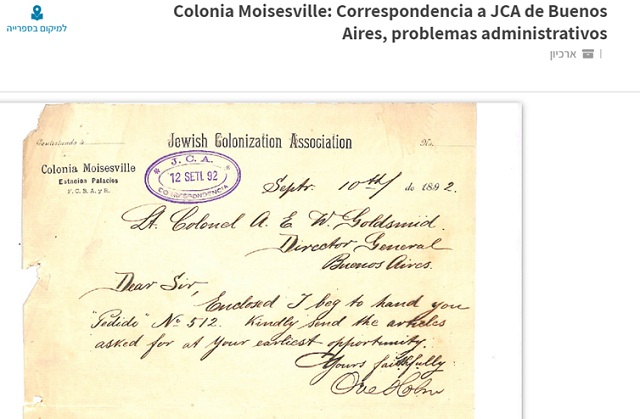 למיקום בספרייה
Colonia Moisesville: Correspondencia a JCA de Buenos
Aires, problemas administrativos
ארכיון
Jewish Colonization Association
No.
Colonia Moisesville
Estacion Palacios
F. C. B. A. y R.
J. C. A.
12 SETI. 92
CORRESPONDENCIA
Septr. 10th de 1892.
Lt. Colonel A. E. W. Goldsmid.
Director General
Buenos Aires.
Dear Sir,
Enclosed I beg to hand you
"Pedido" No 512. Kindly send the articles
asked for at your earliest opportunity.
Yours faithfully